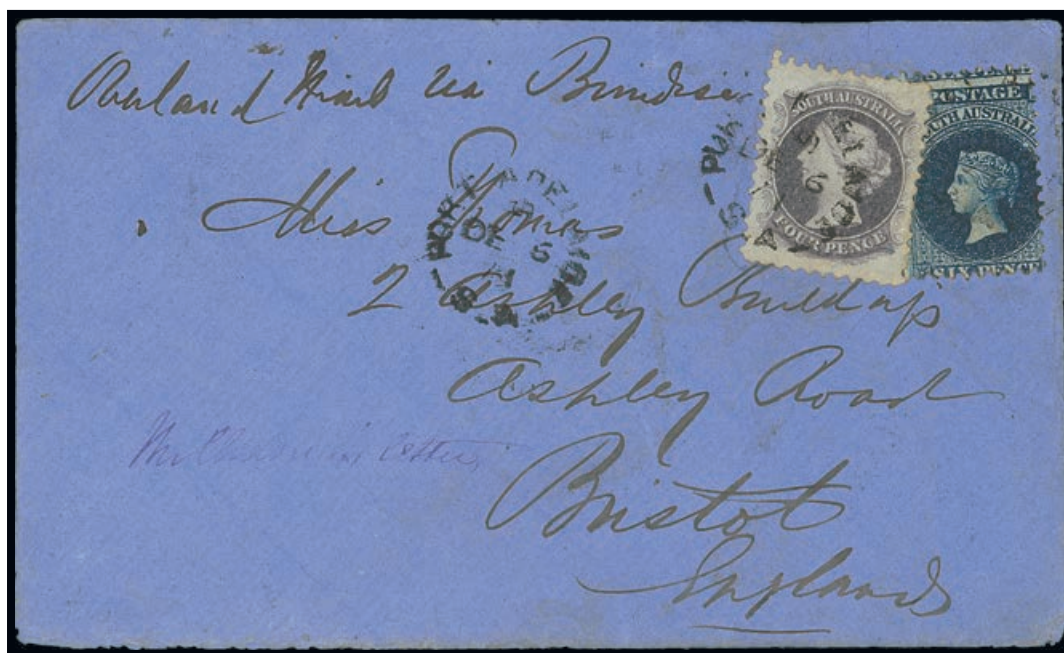 Overland Mail via Brindisi
Miss Thomas
2 Ashley Buildings
Ashley Road
Bristol
England
SOUTH AUSTRALIA
FOUR PENCE
POSTAGE
SOUTH AUSTRALIA
SIX PENCE
PORT ADELAIDE
DE 6
71
S A
PORT ADELAIDE
DE 6
S A